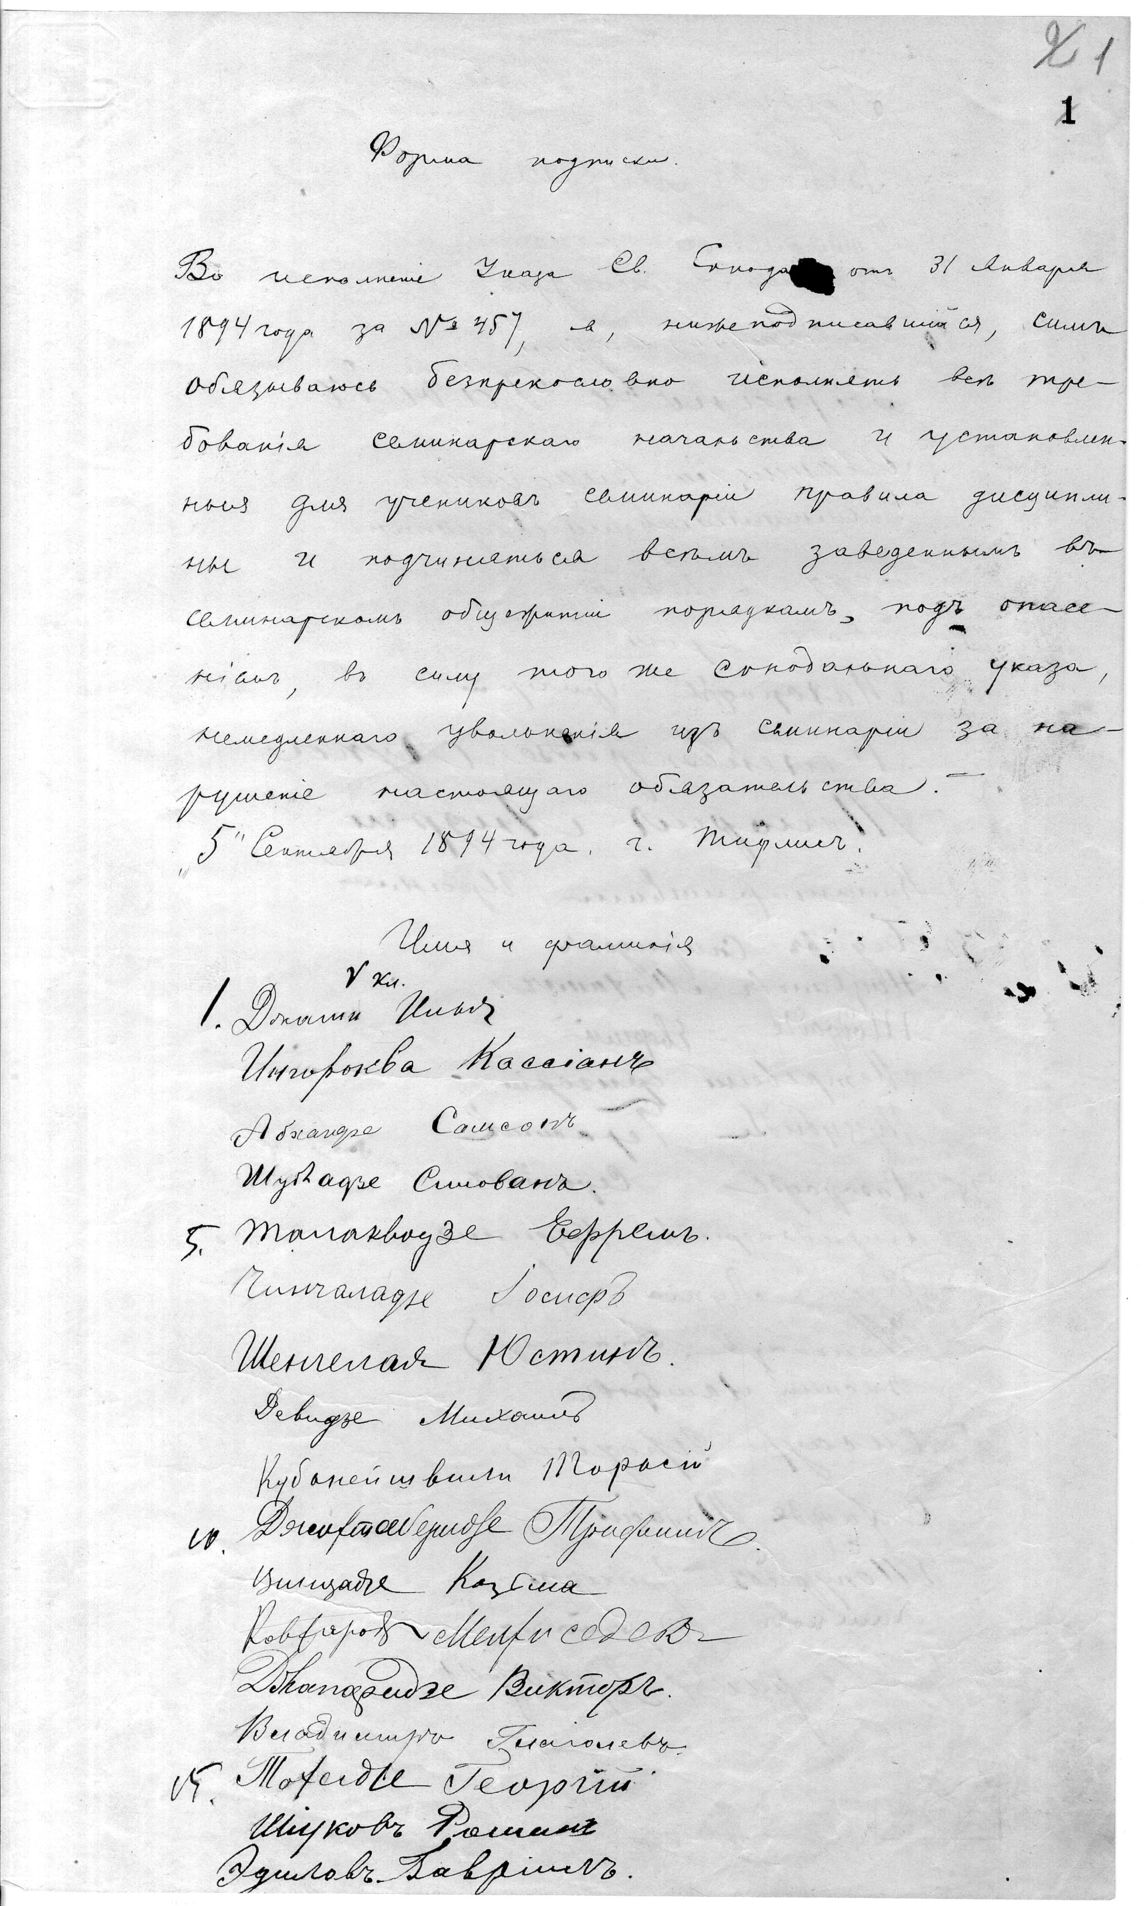 1
1
Форма подписки.
Во исполненіе Указа Св. Синода отъ 31 Января
1894 года за № 457, я, нижеподписавшійся, симъ
обязываюсь безпрекословно исполнять всѣ тре-
бованія семинарскаго начальства и установлен-
ныя для учениковъ семинаріи правила дисципли-
ны и подчиняться всѣмъ заведеннымъ въ
семинарскомъ общежитіи порядкамъ, подъ опасе-
ніемъ, въ силу того же синодальнаго указа,
немедленнаго увольненія изъ семинаріи за на-
рушеніе настоящаго обязательства. —
„5" Сентября 1894 года. г. Тифлисъ.
Имя и фамилія
V кл.
1. Джаши Илья
Ингороква Кассіанъ
Абхаидзе Самсонъ
Шубладзе Силованъ.
5. Талаквадзе Ефремъ.
Чинчаладзе Іосифъ
Шенгелая Юстинъ.
Девидзе Михаилъ
Кубанейшвили Тарасій
10. Трифилъ.
Козьма
Мелхиседекъ
Джапаридзе Викторъ.
Владимиръ Глаголевъ.
15. Георгій
Шіуковъ Романъ
Эдиловъ Гавріилъ.